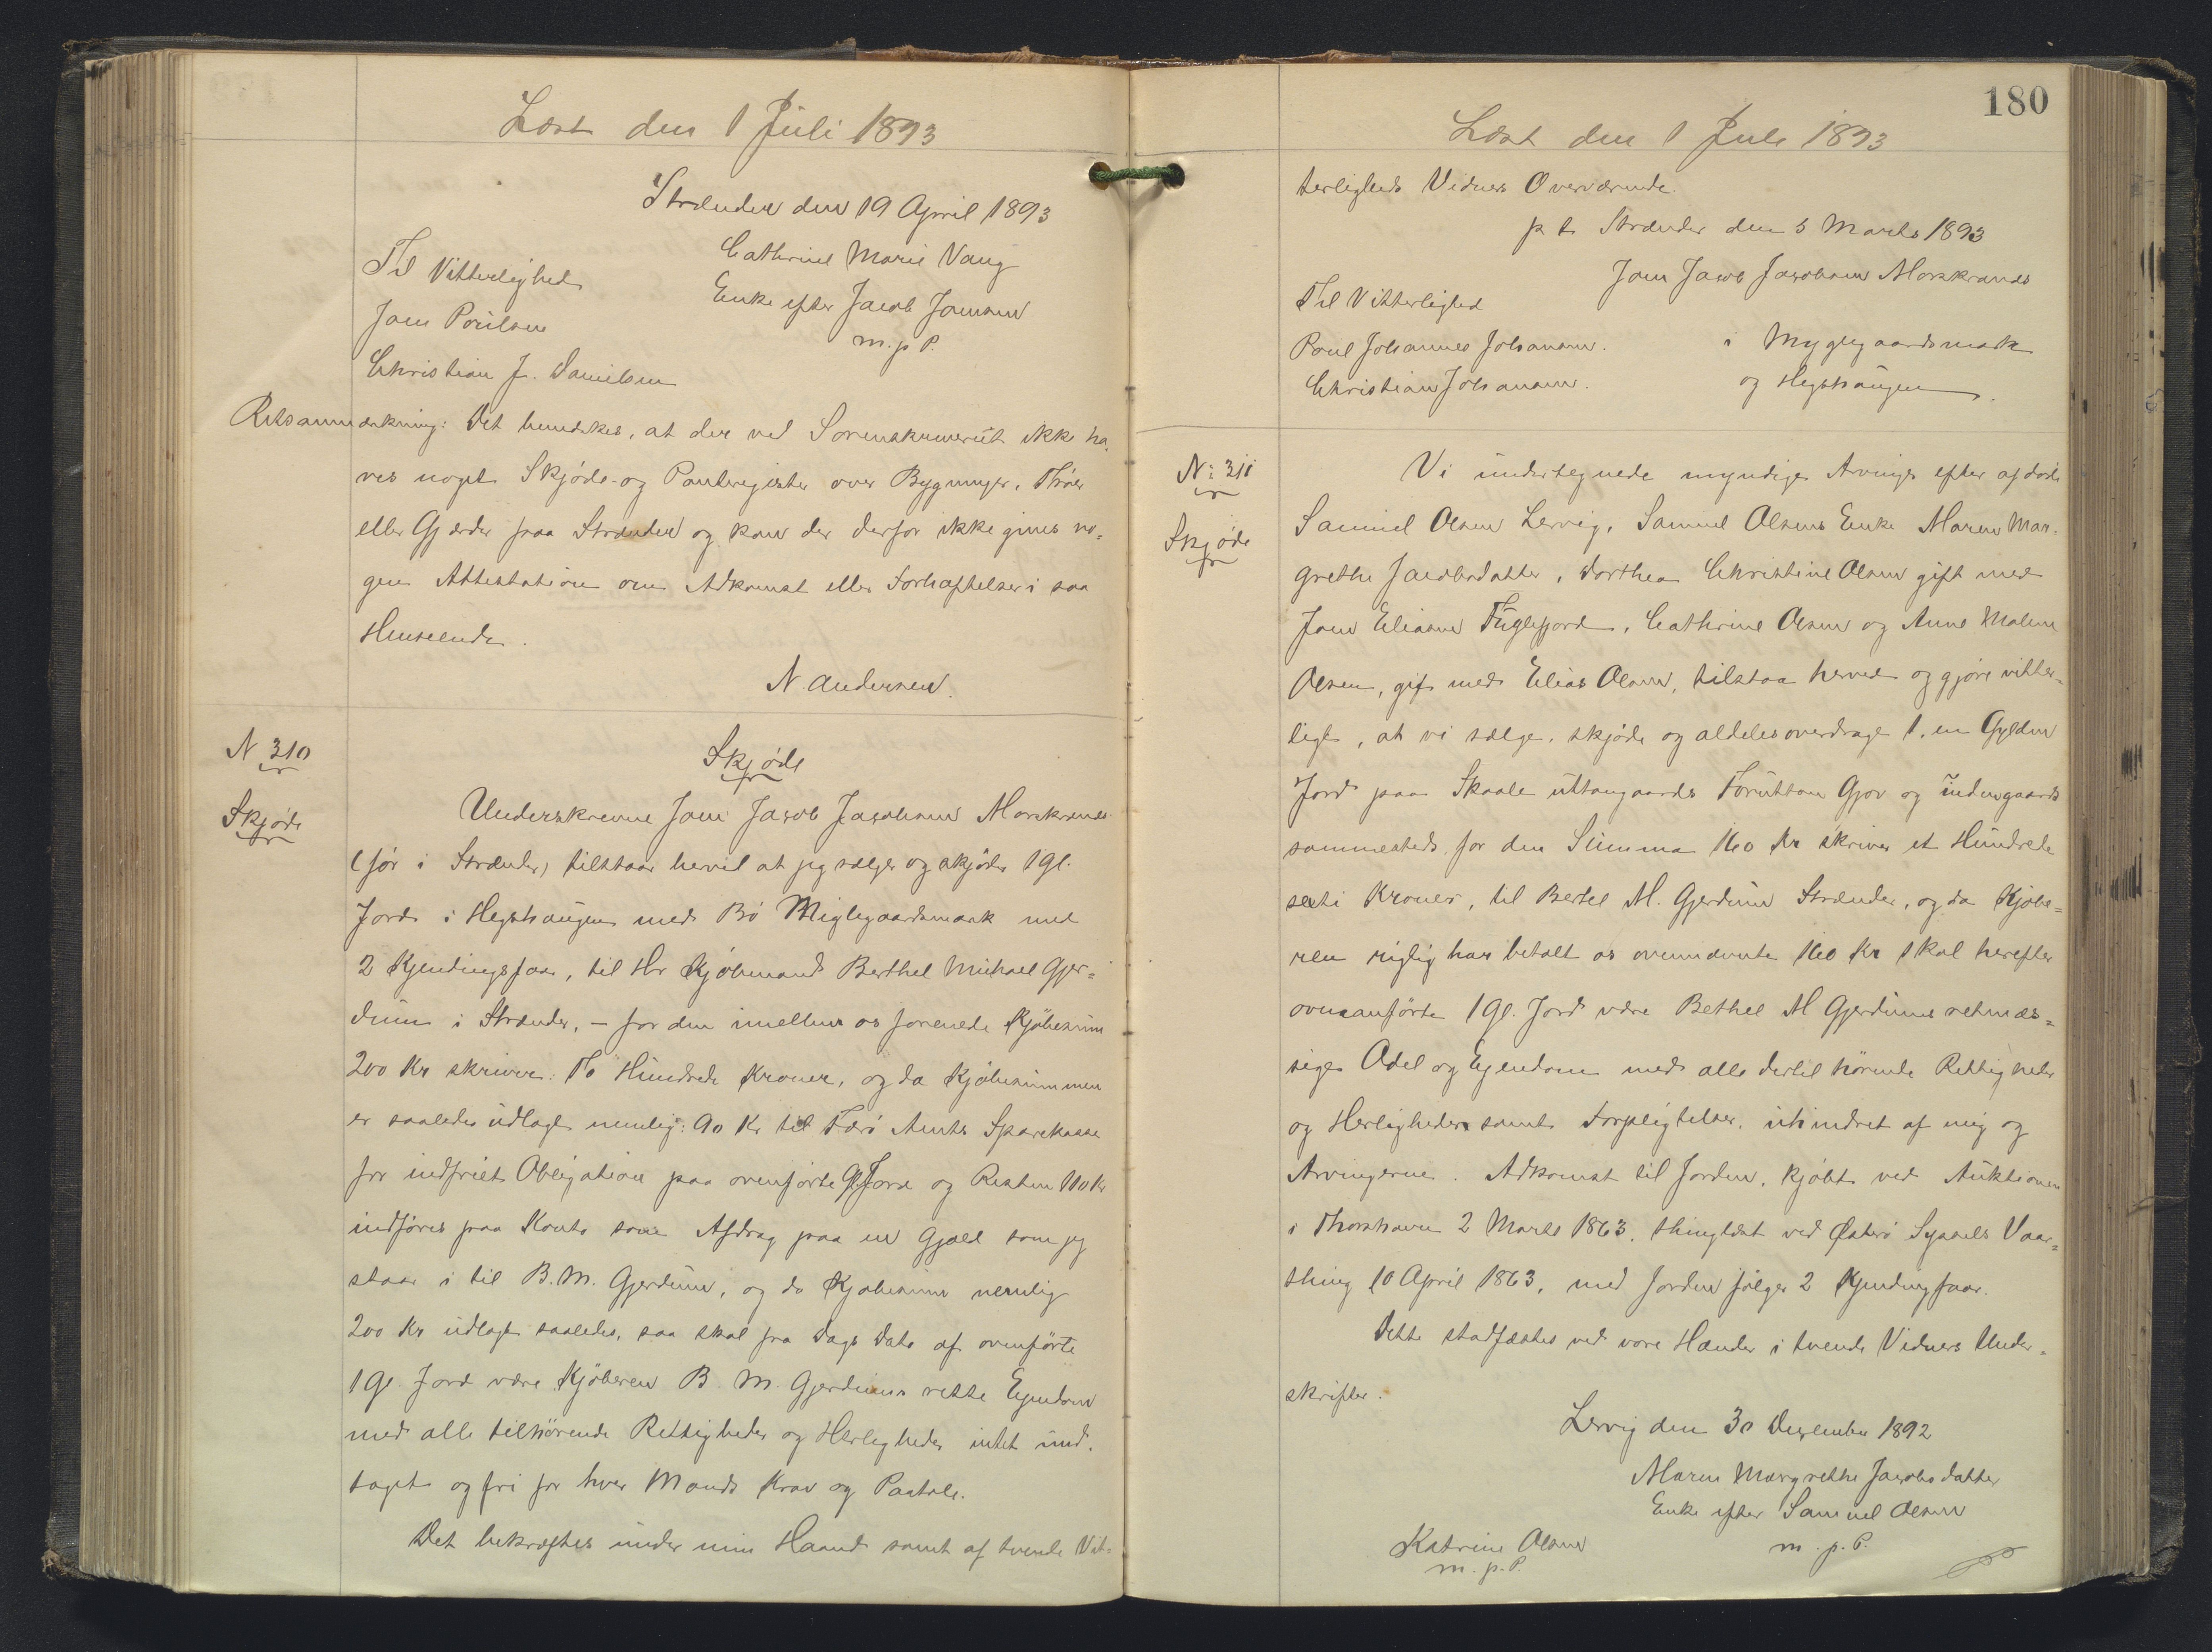 Læst den 1 Juli 1893
Strænder den 19 April 1893
Cathrine Marie Vang
Til Vitterlighed
Enke efter Jacob Joensen
Joen Poulsen
m. p P.
Christian J. Danielsen
Retsanmærkning: Det bemærkes, at der ved Sorenskriveriet ikke ha,
ves noget Skjøde- og Panteregister over Bygninger, Thóer
eller Gjærder paa Strænder og kan der derfor ikke gives no=
gen Attestation om Adkomst eller Forhæftelser i saa
Henseende.
N. Andersen.
N 310
Skjøde
Skjøde
Underskrevne Joen Jacob Jacobsen Morskranes
(før i Strænder) tilstaar hervil at jeg sælger og skjøder 1 gl.
Jord i Hegshaugen med Bø Miglegaardsmark med
2 Kjendingsfaar, til Hr Kjøbmand Berthel Michael Gjer=
dum i Strænder, - for den imellem os forenede Kjøbesum
200 Kr skriver: To Hundrede Kroner, og da Kjøbesummen
er saaledes udlagt nemlig: 90 Kr til Færø Amts Sparekasse
for indfriet Obligation paa ovenførte Gl Jord og Resten 110 Kr
indføres paa Konto som Afdrag paa en Gjæld som jeg
staar i til B. M. Gjerdum, og da Kjøbesum nemlig
200 Kr udlagt saaledes, saa skal fra Dags Dato af ovenførte
1 Gl. Jord være Kjøberen B. M. Gjerdums rette Ejendom
med alle tilhørende Rettigheder og Herligheder intet und,
taget og fri for hver Mands Krav og Paatale.
Det bekræftes under min Haand samt af tvende Vit=
180
Læst den 1 Juli 1893
terligheds Vidners Overværende.
p t. Strænder den 5 Marts 1893
Joen Jacob Jacobsen Morskranes
Til Vitterlighed
Poul Johannes Johansen.
i Myglegaardsmark
Christian Johansen.
og Hegshaugen.
No 311
Skjøde
Vi undertegnede myndige Arvinge efter afdøde
Samuel Olsen Lervig, Samuel Olsens Enke Maren Mar-
grethe Jacobsdatter, Dorthea Christine Olsen gift med
Joen Eliasen Fuglefjord, Cathrine Olsen og Anne Malene
Olsen, gift med Elias Olsen, tilstaa herved og gjøre vitter=
ligt, at vi sælge, skjøde og aldeles overdrage 1, en Gylden
Jord paa Skaale uttangaards Foruttan Gjov og indengaards
sammesteds for den Summa 160 Kr skriver et Hundrede
sexti Kroner, til Bertel M. Gjerdum Strænder, og da Kjøbe=
ren rigtig har betalt os ovennævnte 160 Kr skal herefter
ovenanførte 1 Gl. Jord være Bethel M Gjerdums retmæs=
sige Odel og Ejendom med alle dertil hørende Rettigheder
og Herligheder samt Forpligtelser, uhindret af mig og
Arvingerne. Adkomst til Jorden, kjøbt ved Auktionen
i Thorshavn 2 Marts 1863, thinglæst ved Østerø Syssels Vaar=
thing 10 April 1863, med Jorden følger 2 Kjendingfaar.
Dette stadfæstes ved vore Hænder i tvende Vidners Under=
skrifter.
Lervig den 30 Dezember 1892
Maren Margrethe Jacobsdatter
Enke efter Samuel Olsen
Katrine Olsen
m. p. P.
m. p. P.